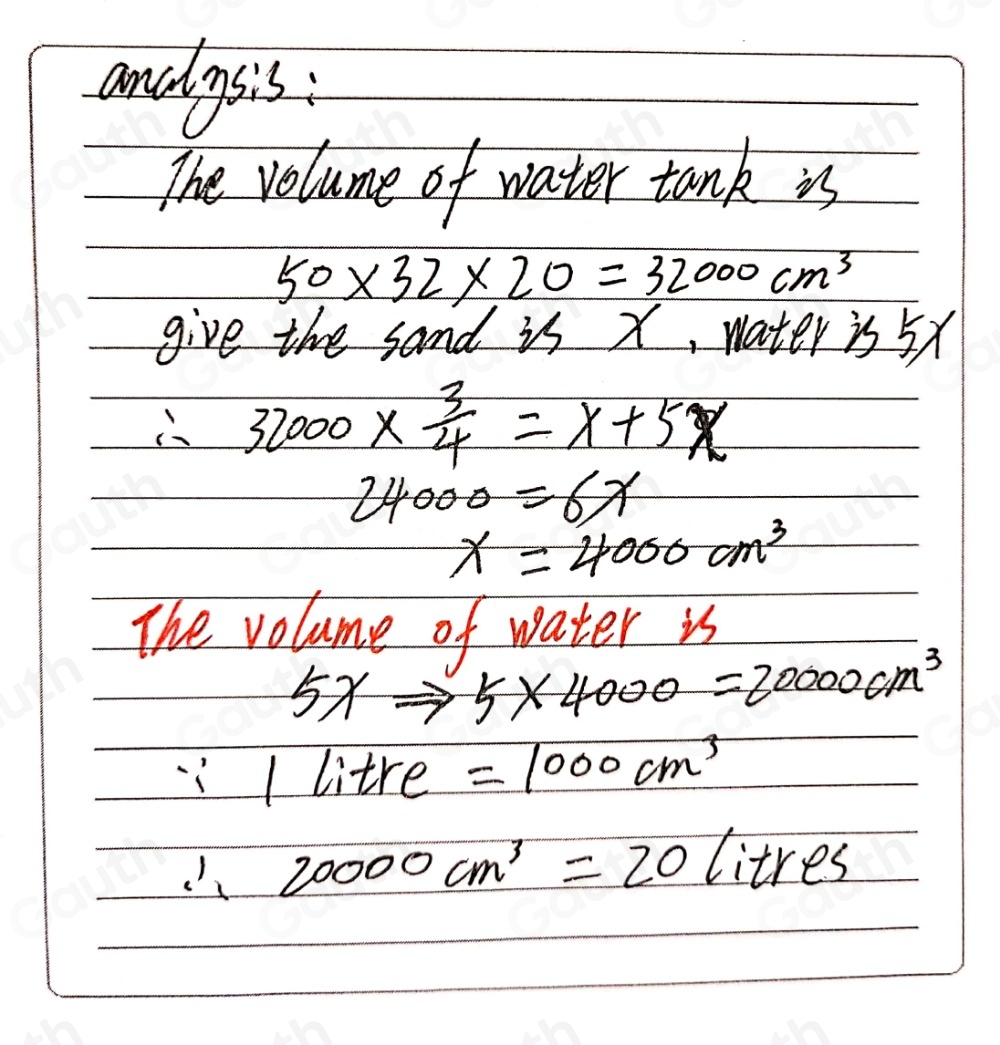 analysis:
The volume of water tank is
50 × 32 × 20 = 32000 cm³
give the sand is x, water is 5x
∴ 32000 × 3/4 = x + 5x
24000 = 6x
x = 4000 cm³
The volume of water is
5x ⇒ 5 × 4000 = 20000 cm³
∵ 1 litre = 1000 cm³
∴ 20000 cm³ = 20 litres
Gauth